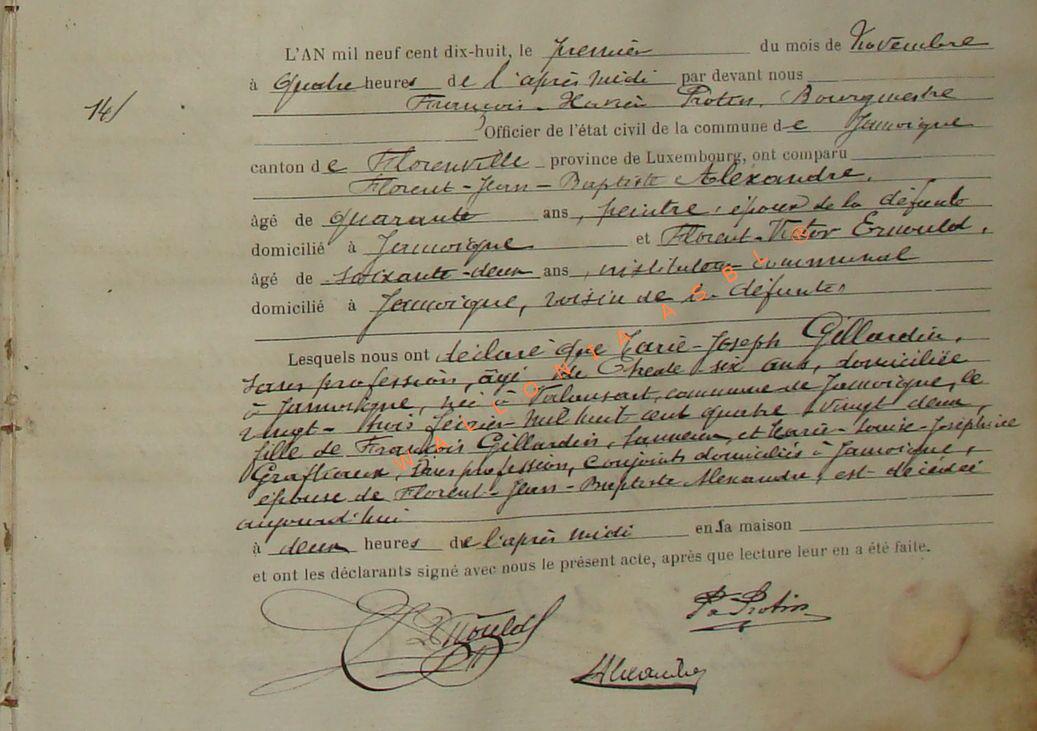 L'AN mil neuf cent dix-huit, le premier du mois de Novembre
à quatre heures de l'après midi par devant nous
14/
François-Xavier Protin, Bourgmestre
Officier de l'état civil de la commune de Jamoigne
canton de Florenville province de Luxembourg, ont comparu
Florent-Jean-Baptiste Alexandre,
âgé de quarante ans, peintre, époux de la défunte
domicilié à Jamoigne et Florent-Victor Ernould,
âgé de soixante-deux ans, instituteur communal
domicilié à Jamoigne, voisin de la défunte,
Lesquels nous ont déclaré que Marie-Joseph Gillardin,
sans profession, âgé de Trente six ans, domiciliée
à Jamoigne, né à Valansart, commune de Jamoigne, le
vingt-trois février mil huit cent quatre vingt deux,
fille de François Gillardin, et Marie-Louise-Joséphine
sans profession, conjoints domiciliés à Jamoigne,
épouse de Florent-Jean-Baptiste Alexandre, est décédée
aujourd'hui
à deux heures de l'après midi en sa maison
et ont les déclarants signé avec nous le présent acte, après que lecture leur en a été faite.
Ernould
Protin
Alexandre
WALLONIA ASBL ®